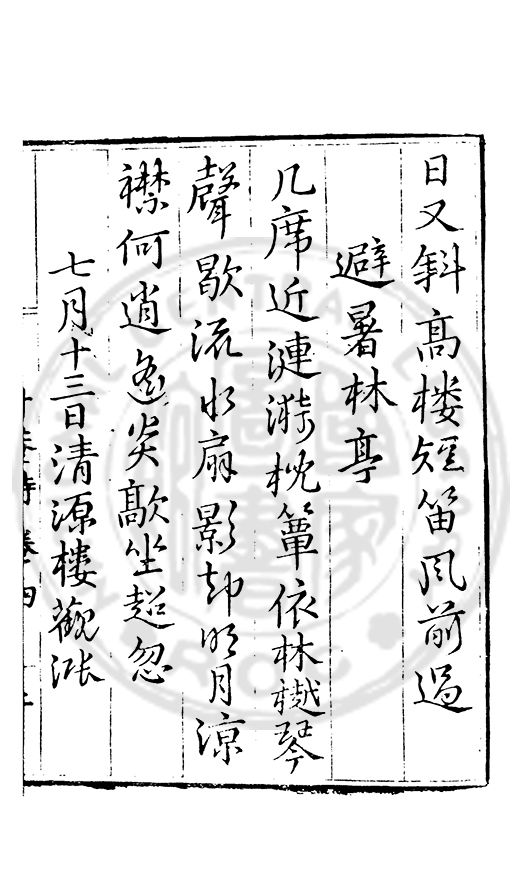 日又斜高楼短笛风前過
避暑林亭
几席近漣漪枕簟依林樾琴
聲歇流水扇影却明月凉
襟何逍遙炎歊坐超忽
七月十三日清源樓觀漲